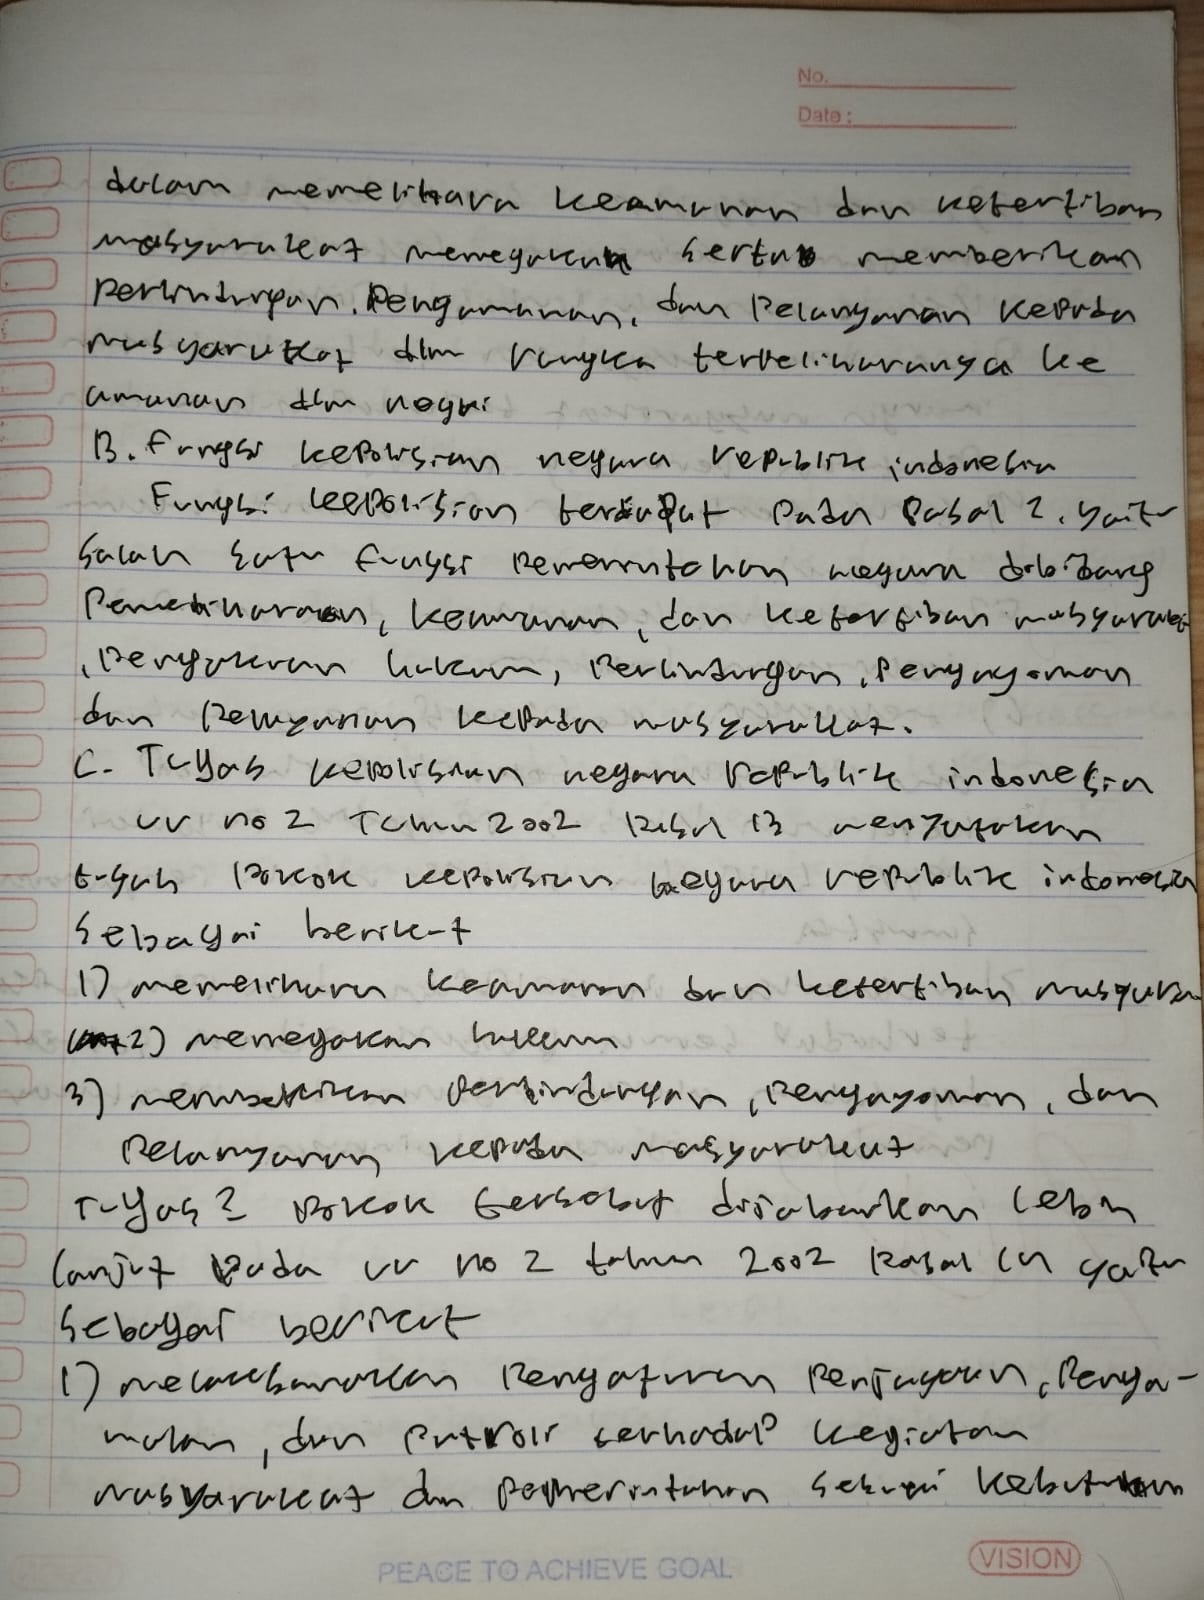 No.
Date :
dalam memelihara keamanan dan ketertiban
masyarakat menegakan serta memberikan
Perlindungan. Pengamanan, dan Pelanyanan kepada
masyarakat dlm rangka terpeliharanya ke
amanan dlm negri
B. Fungsi kepolisian negara republik indonesia
Fungsi kepolisian terdapat Pada Pasal 2. yaitu
Salah Satu fungsi Pemerintahan negara dibidang
Pemeliharaan, keamanan, dan ketertiban masyarakat
, Pengakan hukum, Perlindungan, Pengayoman
dan Pelayanan kepada masyarakat.
C. Tugas kepolisian negara Republik indonesia
UU no 2 Tahun 2002 Pasal 13 menyatakan
tugas Pokok kepolisian negara republik indonesia
Sebagai berikut
1) memelihara keamanan dan ketertiban masyara
2) menegakan hukum
3) memberikan Perlindungan, Pengayoman, dan
Pelanyanan kepada masyarakat
Tugas2 Pokok tersebut dijabarkan lebih
lanjut Pada UU no 2 tahun 2002 Pasal 14 yaitu
Sebagai berikut
1) melaksanakan Pengaturan Penjagaan, Penga-
walan, dan Patroli terhadap kegiatan
masyarakat dan pemerintahan Sebagai kebutuhan
PEACE TO ACHIEVE GOAL
VISION